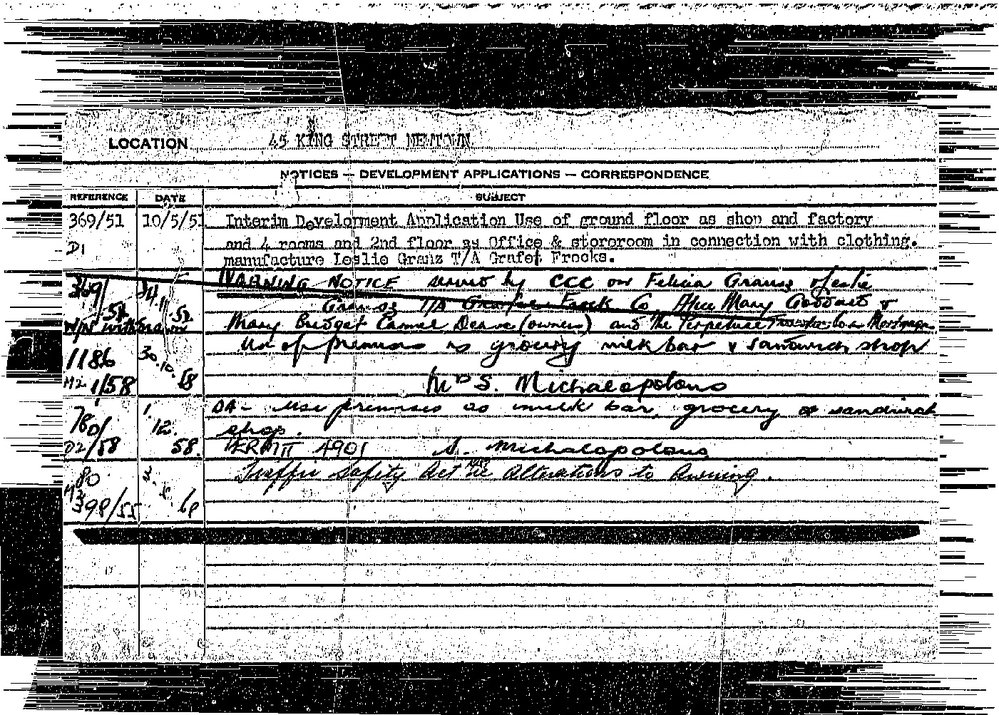 LOCATION 45 KING STREET NEWTOWN
NOTICES — DEVELOPMENT APPLICATIONS — CORRESPONDENCE
REFERENCE DATE SUBJECT
369/51 10/5/51 Interim Development Application Use of ground floor as shop and factory
D1 and 4 rooms and 2nd floor as Office & storeroom in connection with clothing.
manufacture Leslie Granz T/A Grafet Frocks.
369/ WARNING NOTICE served by CCC on Felicia Granz Leslie
T/A Co Alice Mary Goddard &
Mary Bridget Carmel Deane (owners) and The Perpetual
1186 30.10.58 Use of premises as grocery milk bar & sandwich shop
1/58 Mrs S. Michalopolous
780/ 1.12. DA - Use premises as milk bar, grocery & sandwich
D2/58 58. shop.
PERMIT 4901 S. Michalopolous
80 3. Traffic Safety Act Alterations to Awning.
398/55